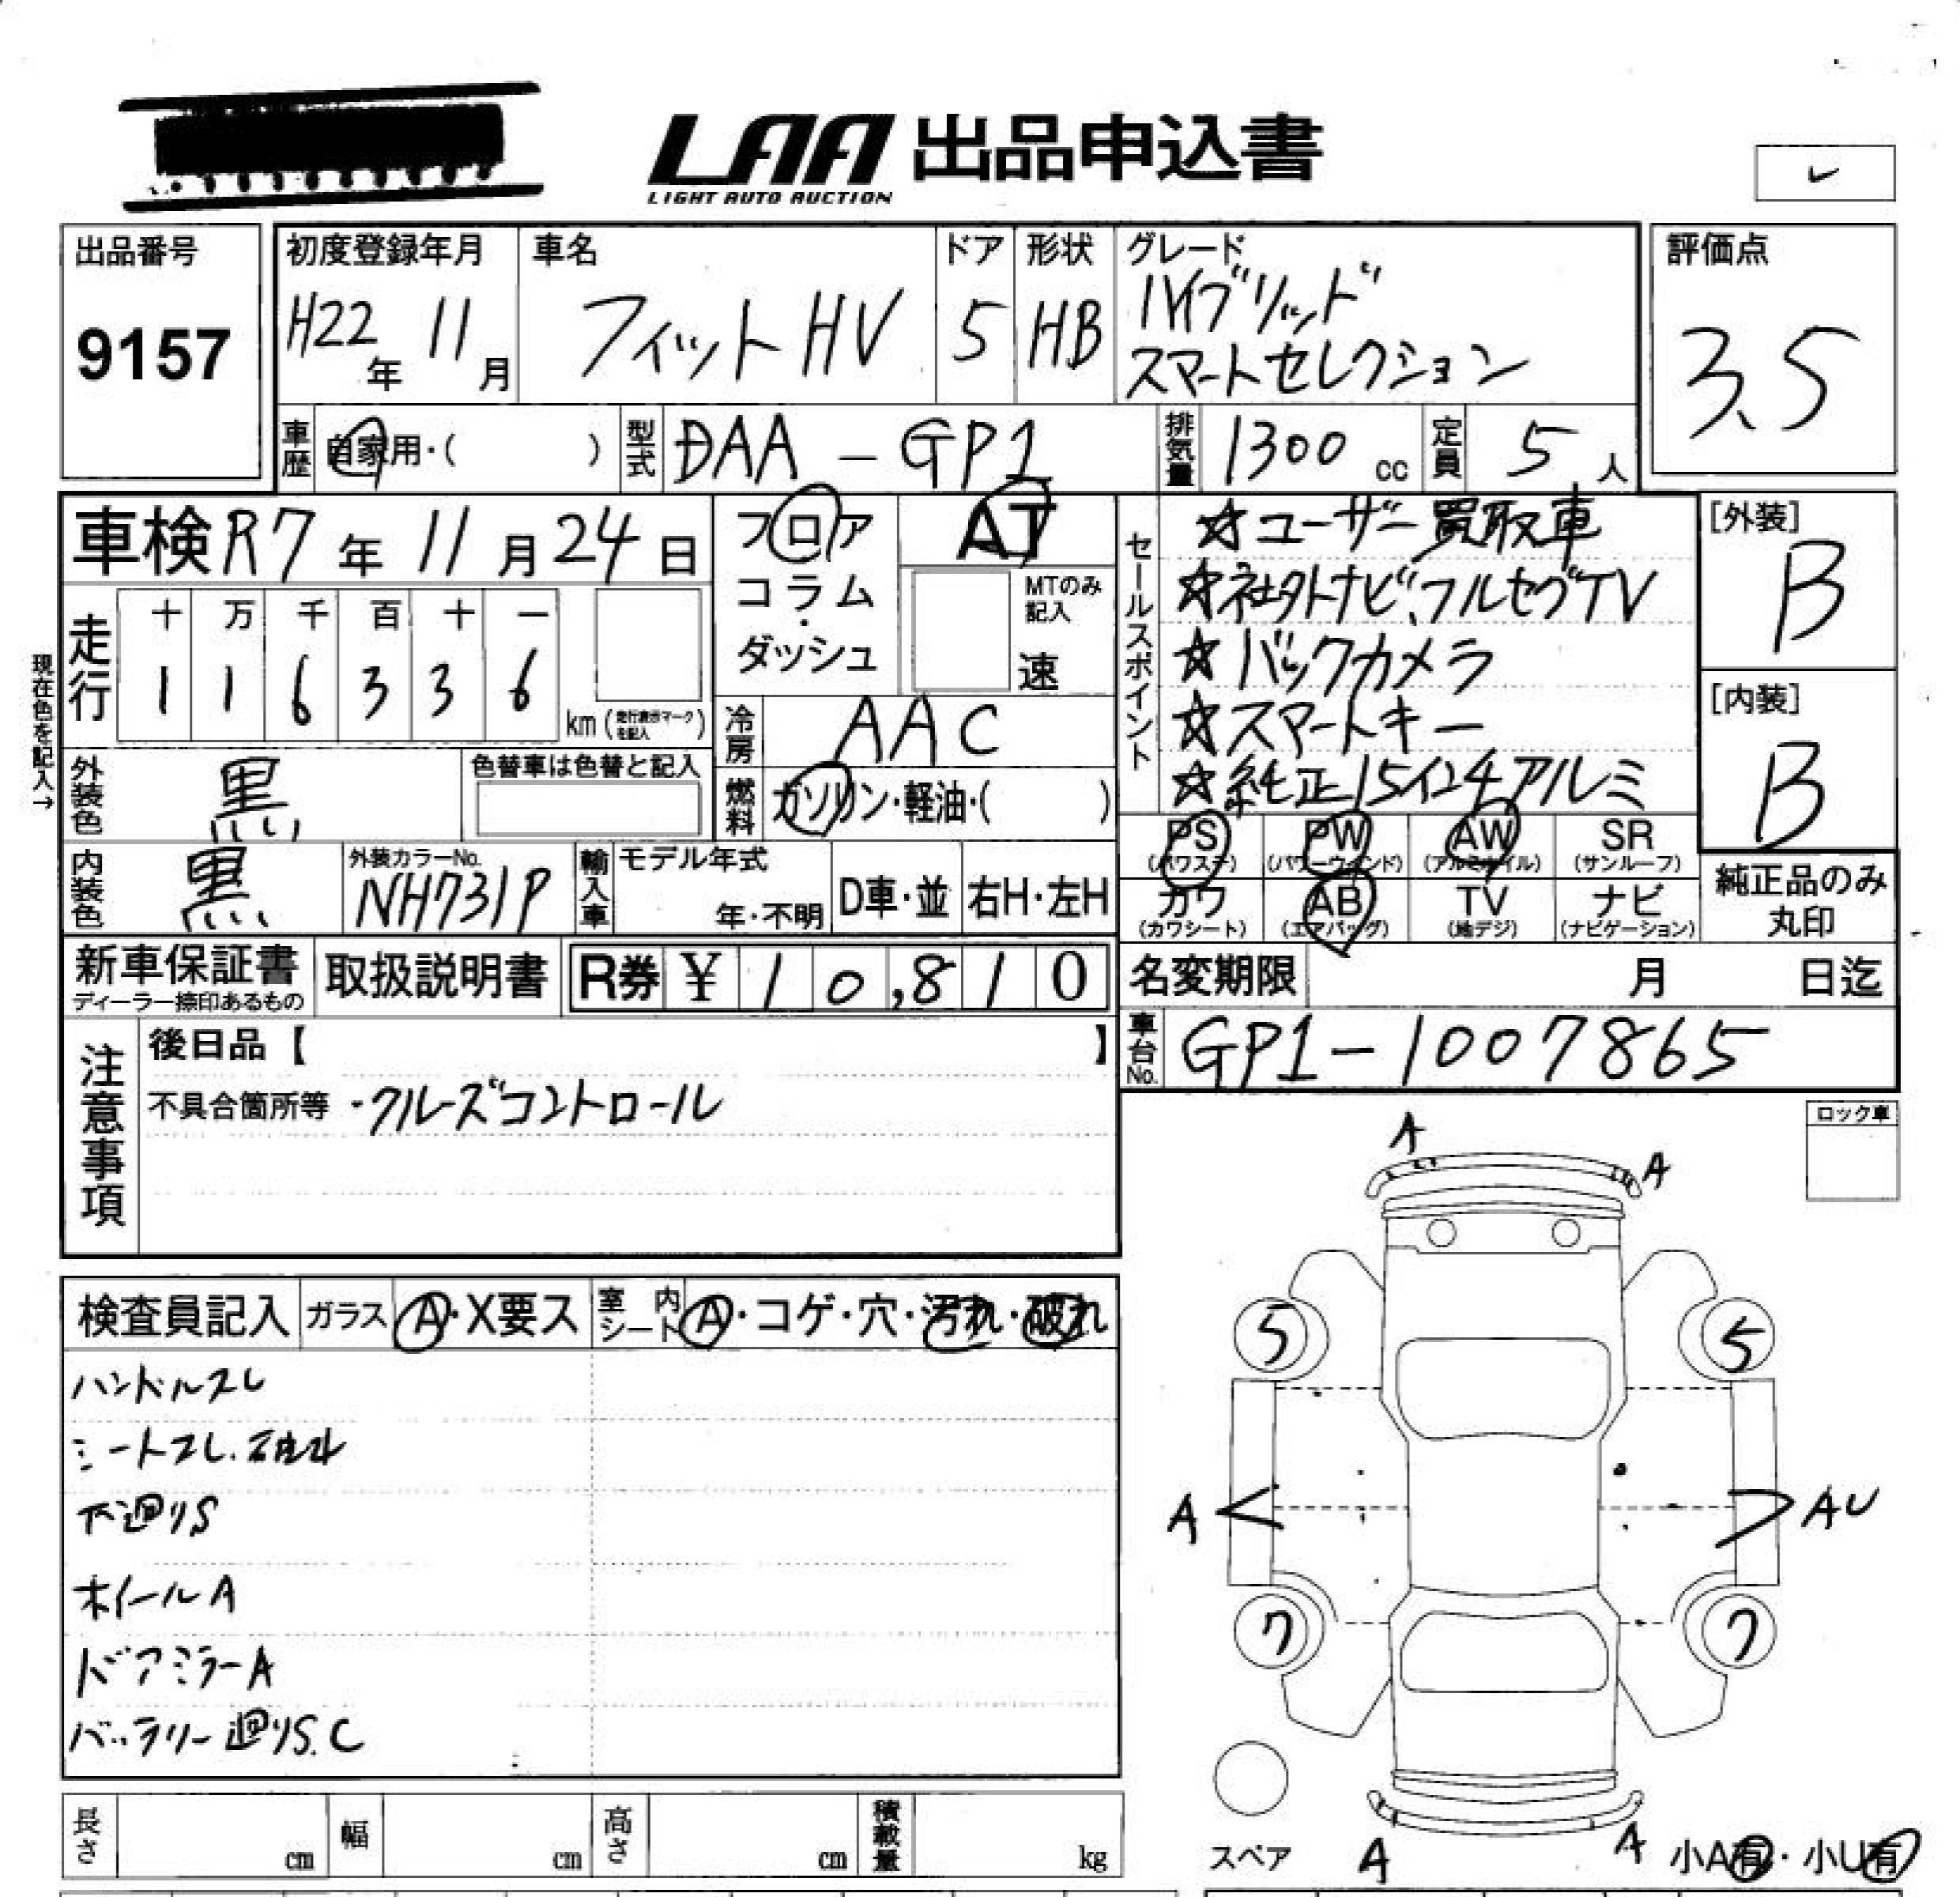 LAA 出品申込書
LIGHT AUTO AUCTION
出品番号
9157
初度登録年月
H22年 11月
車名
フィットHV
ドア
5
形状
HB
グレード
ハイブリッド
スマートセレクション
評価点
3.5
車歴 自家用・( )
型式 DAA-GP1
排気量 1300 cc
定員 5人
車検 R7年 11月 24日
フロア
コラム・
ダッシュ
AT
MTのみ
記入
速
現在色を記入→
走行
十 万 千 百 十 一
1 1 6 3 3 6
km (走行表示マークを記入)
冷房 AAC
燃料 ガソリン・軽油・( )
外装色 黒
色替車は色替と記入
内装色 黒
外装カラーNo.
NH731P
輸入車
モデル年式
年・不明
D車・並
右H・左H
セールスポイント
☆ユーザー買取車
☆社外ナビ、フルセグTV
☆バックカメラ
☆スマートキー
☆純正15インチアルミ
[外装]
B
[内装]
B
PS (パワステ)
PW (パワーウィンド)
AW (アルミホイル)
SR (サンルーフ)
カワ (カワシート)
AB (エアバッグ)
TV (地デジ)
ナビ (ナビゲーション)
純正品のみ
丸印
新車保証書
ディーラー捺印あるもの
取扱説明書
R券 ¥10,810
名変期限 月 日迄
車台No. GP1-1007865
注意事項
後日品【 】
不具合箇所等 ・クルーズコントロール
ロック車
検査員記入
ガラス A・X要ス
室内シート A・コゲ・穴・汚れ・破れ
ハンドルスレ
シートスレ.
下廻りS
ホイールA
ドアミラーA
バッテリー廻りS.C
A
A
5
5
A
AU
7
7
スペア
A
A
小A有・小U有
長さ cm
幅 cm
高さ cm
積載量 kg